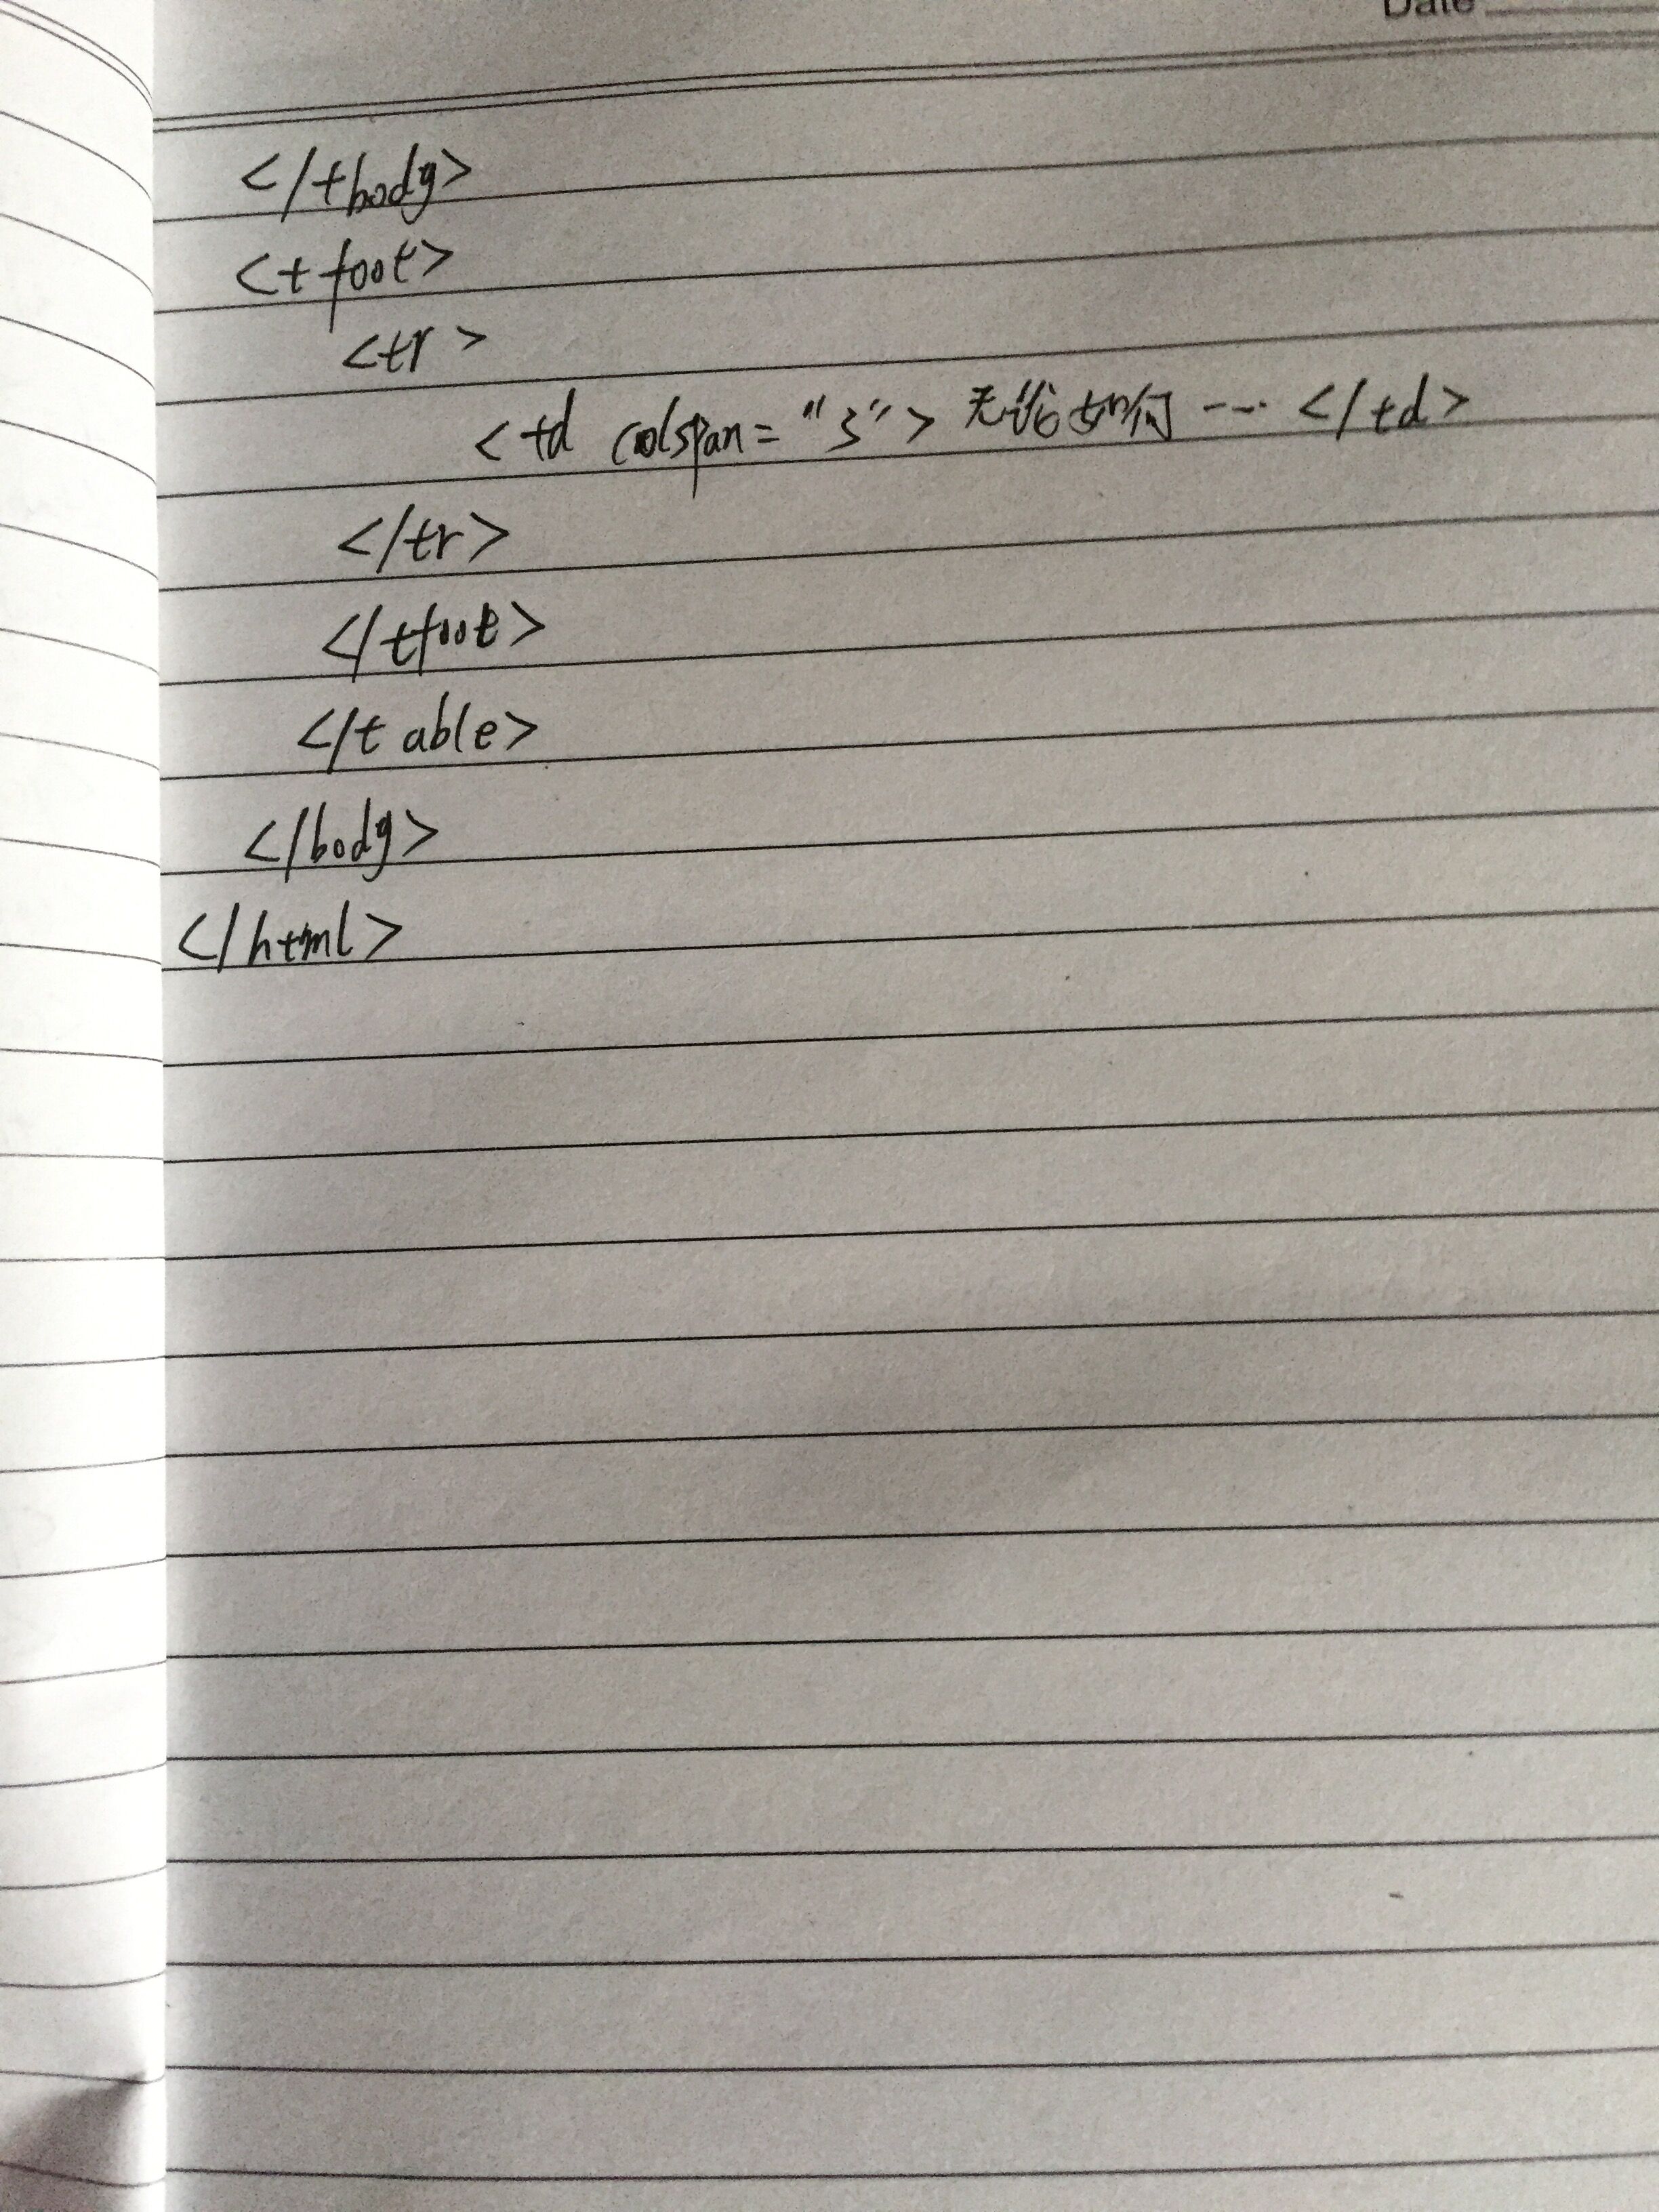 Date
</tbody>
<tfoot>
<tr>
<td colspan="3">无论如何……</td>
</tr>
</tfoot>
</table>
</body>
</html>